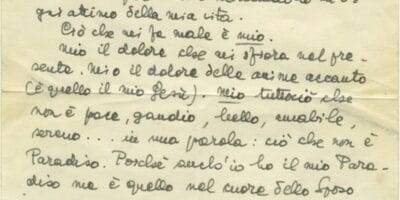 gni attimo della mia vita.
Ciò che mi fa male è mio.
Mio il dolore che mi sfiora nel pre-
sente. Mio il dolore delle anime accanto
(è quello il mio Gesù). Mio tutto ciò che
non è pace, gaudio, bello, amabile,
sereno... in una parola: ciò che non è
Paradiso. Poiché anch'io ho il mio Para-
diso ma è quello nel cuore dello Sposo